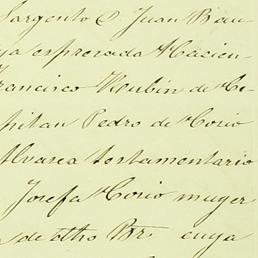 Sargento D. Juan Bau
ya espresada Hacien
Francisco Rubin de Ce
pitan Pedro de Cosio
Alvarea testamentario
Josefa Cosio muger
de otho Br. cuya